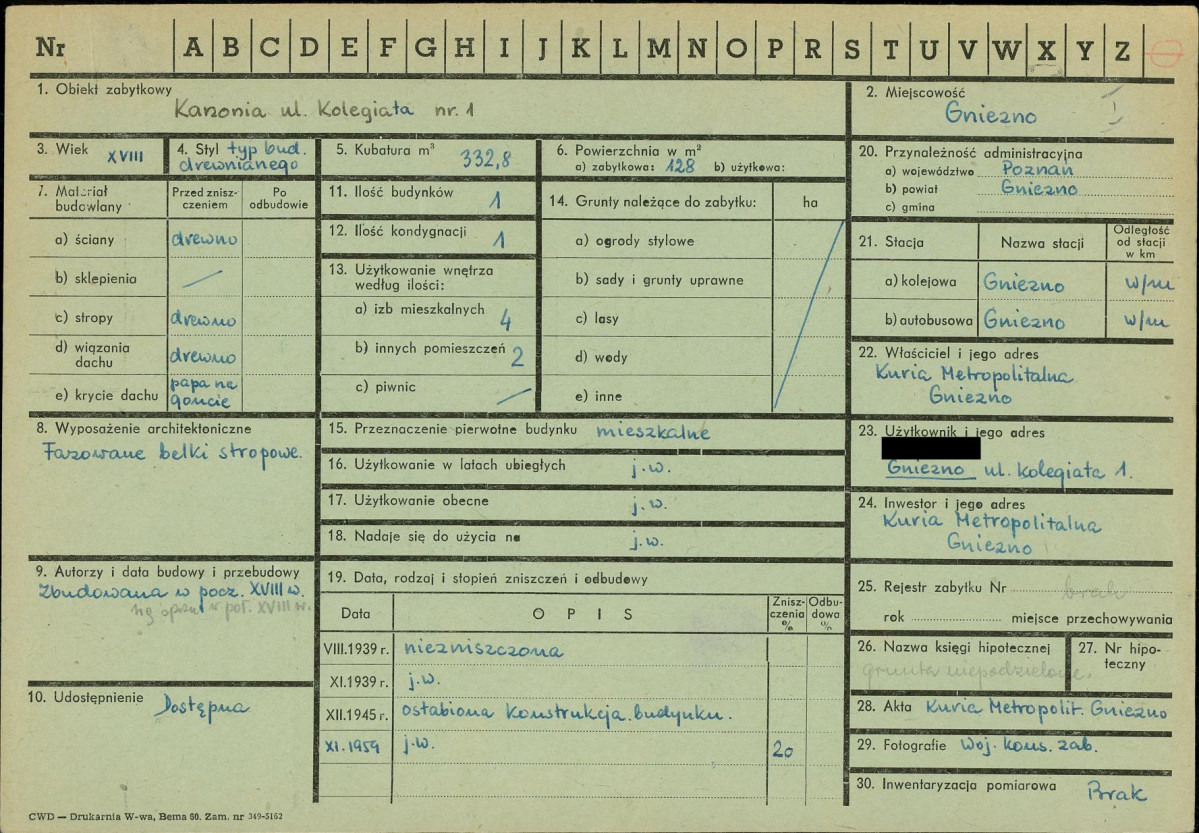 Nr A B C D E F G H I J K L M N O P R S T U V W X Y Z
1. Obiekt zabytkowy
Kanonia ul. Kolegiata nr. 1
2. Miejscowość
Gniezno
3. Wiek XVIII
4. Styl typ bud.
drewnianego
5. Kubatura m³ 332,8
6. Powierzchnia w m²
a) zabytkowa: 128 b) użytkowa:
20. Przynależność administracyjna
a) województwo Poznań
b) powiat Gniezno
c) gmina
7. Materiał budowlany
Przed zniszczeniem
Po odbudowie
a) ściany drewno
b) sklepienia
c) stropy drewno
d) wiązania dachu drewno
e) krycie dachu papa na
goncie
11. Ilość budynków 1
12. Ilość kondygnacji 1
13. Użytkowanie wnętrza
według ilości:
a) izb mieszkalnych 4
b) innych pomieszczeń 2
c) piwnic
14. Grunty należące do zabytku: ha
a) ogrody stylowe
b) sady i grunty uprawne
c) lasy
d) wody
e) inne
21. Stacja Nazwa stacji
Odległość
od stacji
w km
a) kolejowa Gniezno w/m
b) autobusowa Gniezno w/m
22. Właściciel i jego adres
Kuria Metropolitalna
Gniezno
8. Wyposażenie architektoniczne
Fazowane belki stropowe.
15. Przeznaczenie pierwotne budynku mieszkalne
16. Użytkowanie w latach ubiegłych j.w.
17. Użytkowanie obecne j.w.
18. Nadaje się do użycia na j.w.
23. Użytkownik i jego adres
Gniezno ul. Kolegiata 1.
24. Inwestor i jego adres
Kuria Metropolitalna
Gniezno
9. Autorzy i data budowy i przebudowy
Zbudowana w pocz. XVIII w.
w poł. XVIII w.
10. Udostępnienie Dostępna
19. Data, rodzaj i stopień zniszczeń i odbudowy
Data OPIS
Zniszczenia %
Odbudowa %
VIII.1939 r. niezniszczona
XI.1939 r. j.w.
XII.1945 r. osłabiona konstrukcja budynku.
XI.1959 j.w. 20
25. Rejestr zabytku Nr brak
rok miejsce przechowywania
26. Nazwa księgi hipotecznej
grunta niepodzielone.
27. Nr hipoteczny
28. Akta Kuria Metropolit. Gniezno
29. Fotografie Woj. kons. zab.
30. Inwentaryzacja pomiarowa Brak
CWD — Drukarnia W-wa, Bema 60. Zam. nr 349-5162